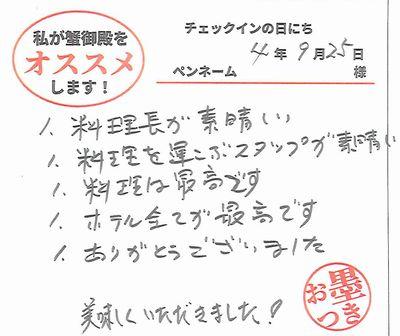 私が蟹御殿を
オススメ
します！
チェックインの日にち
4年 9月25日
ペンネーム 様
1. 料理長が素晴しい
1. 料理を運こぶスタッフが素晴しい
1. 料理は最高です
1. ホテル全てが最高です
1. ありがとうでございました
美味しくいただきました！
お墨つき